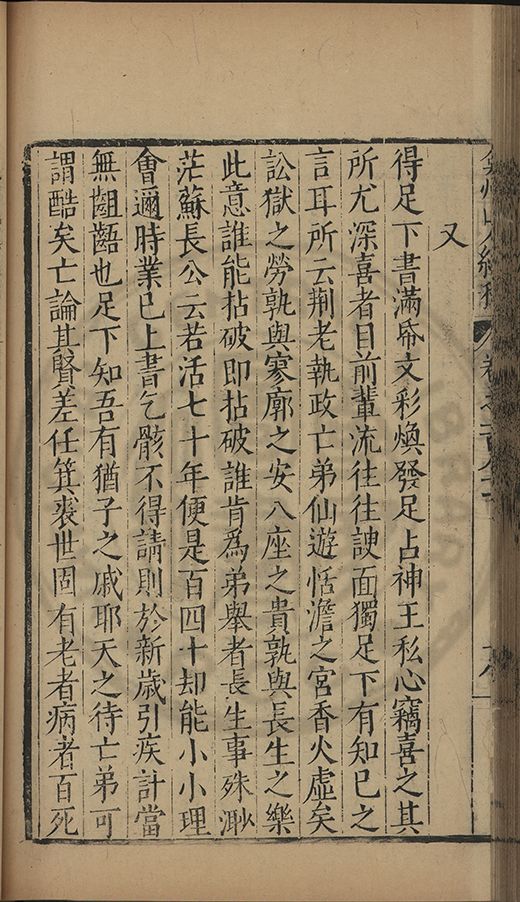 又
得足下書滿帋文彩煥發足占神王私心竊喜之其
所尤深喜者目前輩流往往諛面獨足下有知已之
言耳所云荆老執政亡弟仙遊恬澹之宮香火虛矣
訟獄之勞孰與寥廓之安八座之貴孰與長生之樂
此意誰能拈破即拈破誰肯爲弟舉者長生事殊渺
茫蘇長公云若活七十年便是百四十却能小小理
會邇時業已上書乞骸不得請則於新歲引疾計當
無齟齬也足下知吾有猶子之戚耶天之待亡弟可
謂酷矣亡論其賢差任箕裘世固有老者病者百死